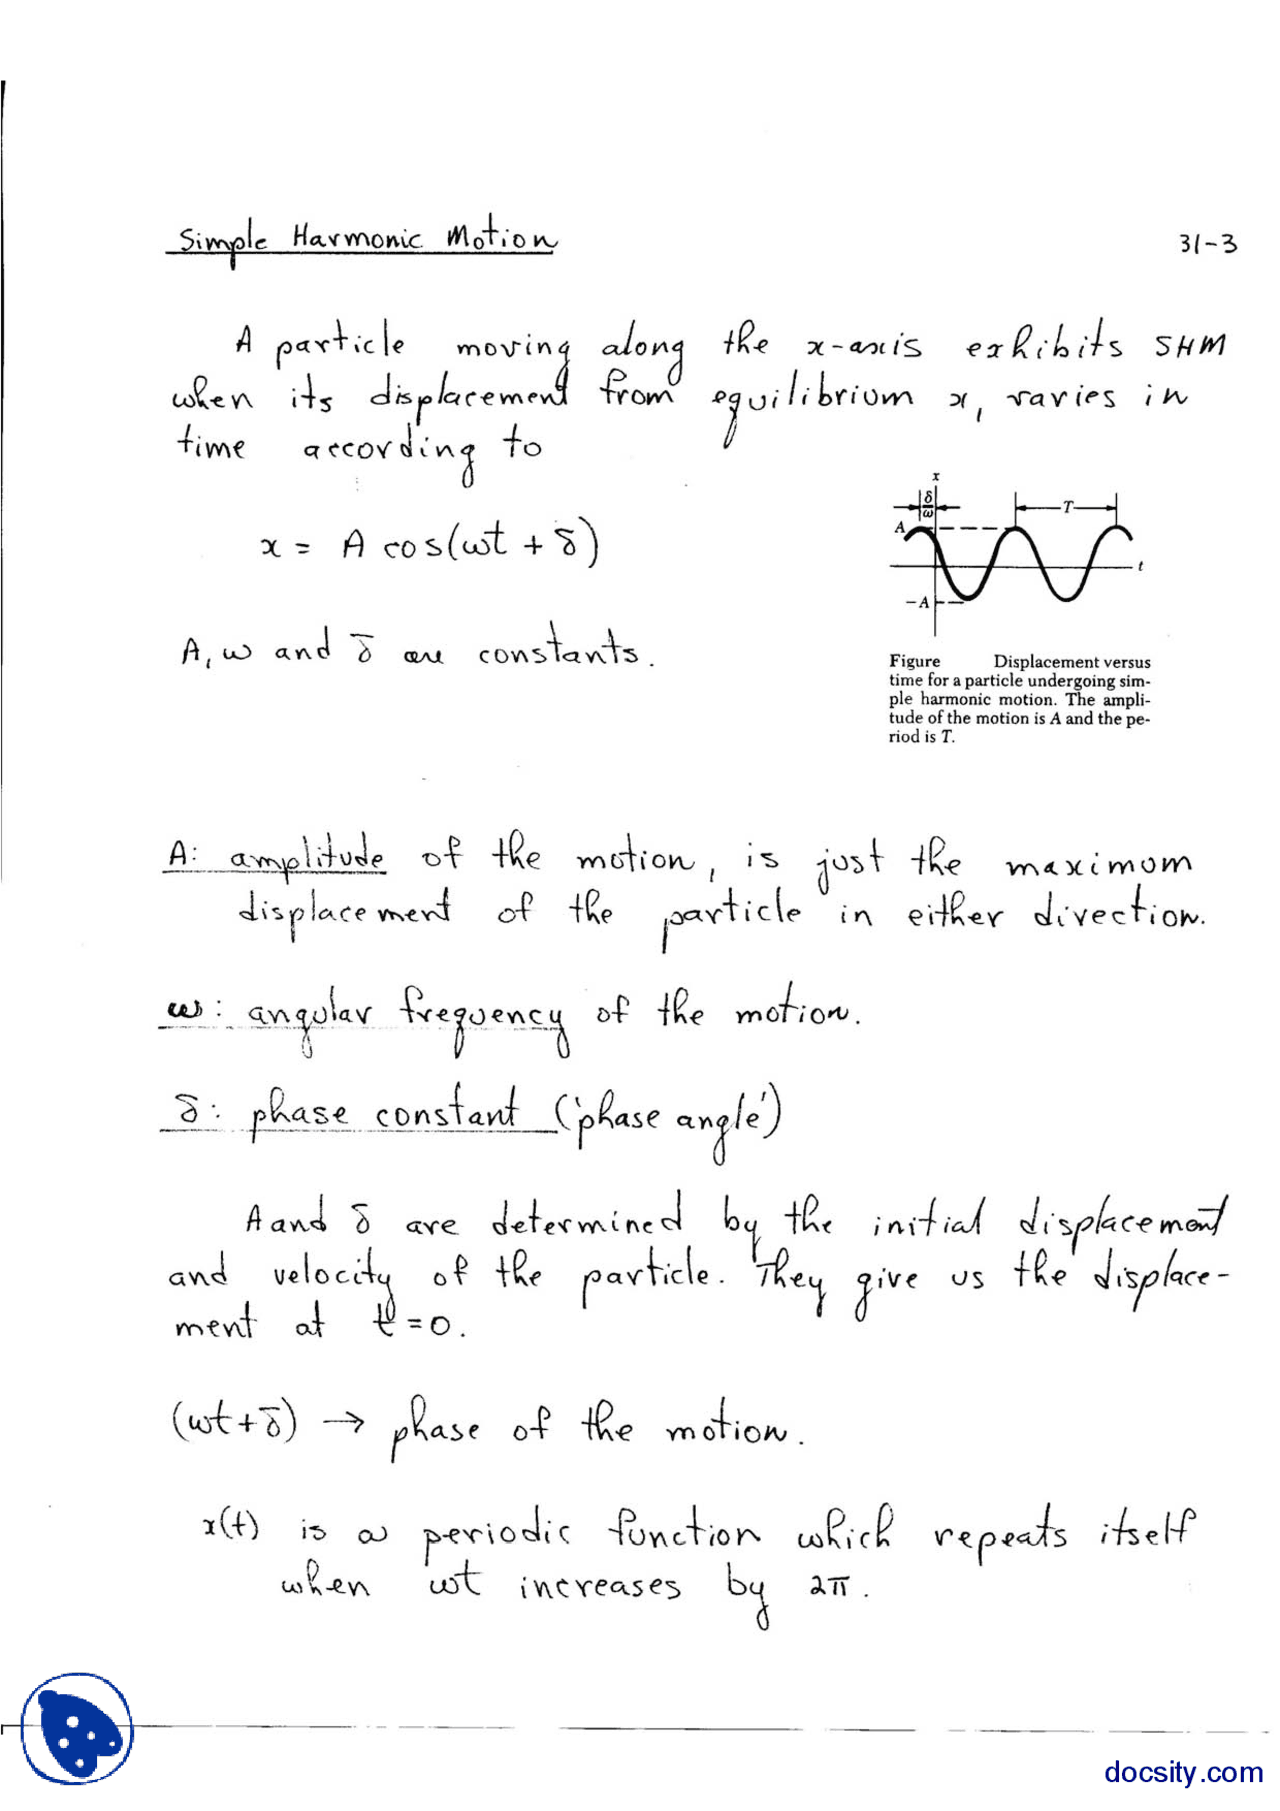 Simple Harmonic Motion
31-3
A particle moving along the x-axis exhibits SHM
when its displacement from equilibrium x, varies in
time according to
x = A cos(ωt + δ)
x
δ
ω
T
A
t
-A
Figure Displacement versus
time for a particle undergoing sim-
ple harmonic motion. The ampli-
tude of the motion is A and the pe-
riod is T.
A, ω and δ are constants.
A: amplitude of the motion, is just the maximum
displacement of the particle in either direction.
ω: angular frequency of the motion.
δ: phase constant ('phase angle')
A and δ are determined by the initial displacement
and velocity of the particle. They give us the displace-
ment at t=0.
(ωt+δ) → phase of the motion.
x(t) is a periodic function which repeats itself
when ωt increases by 2π.
docsity.com